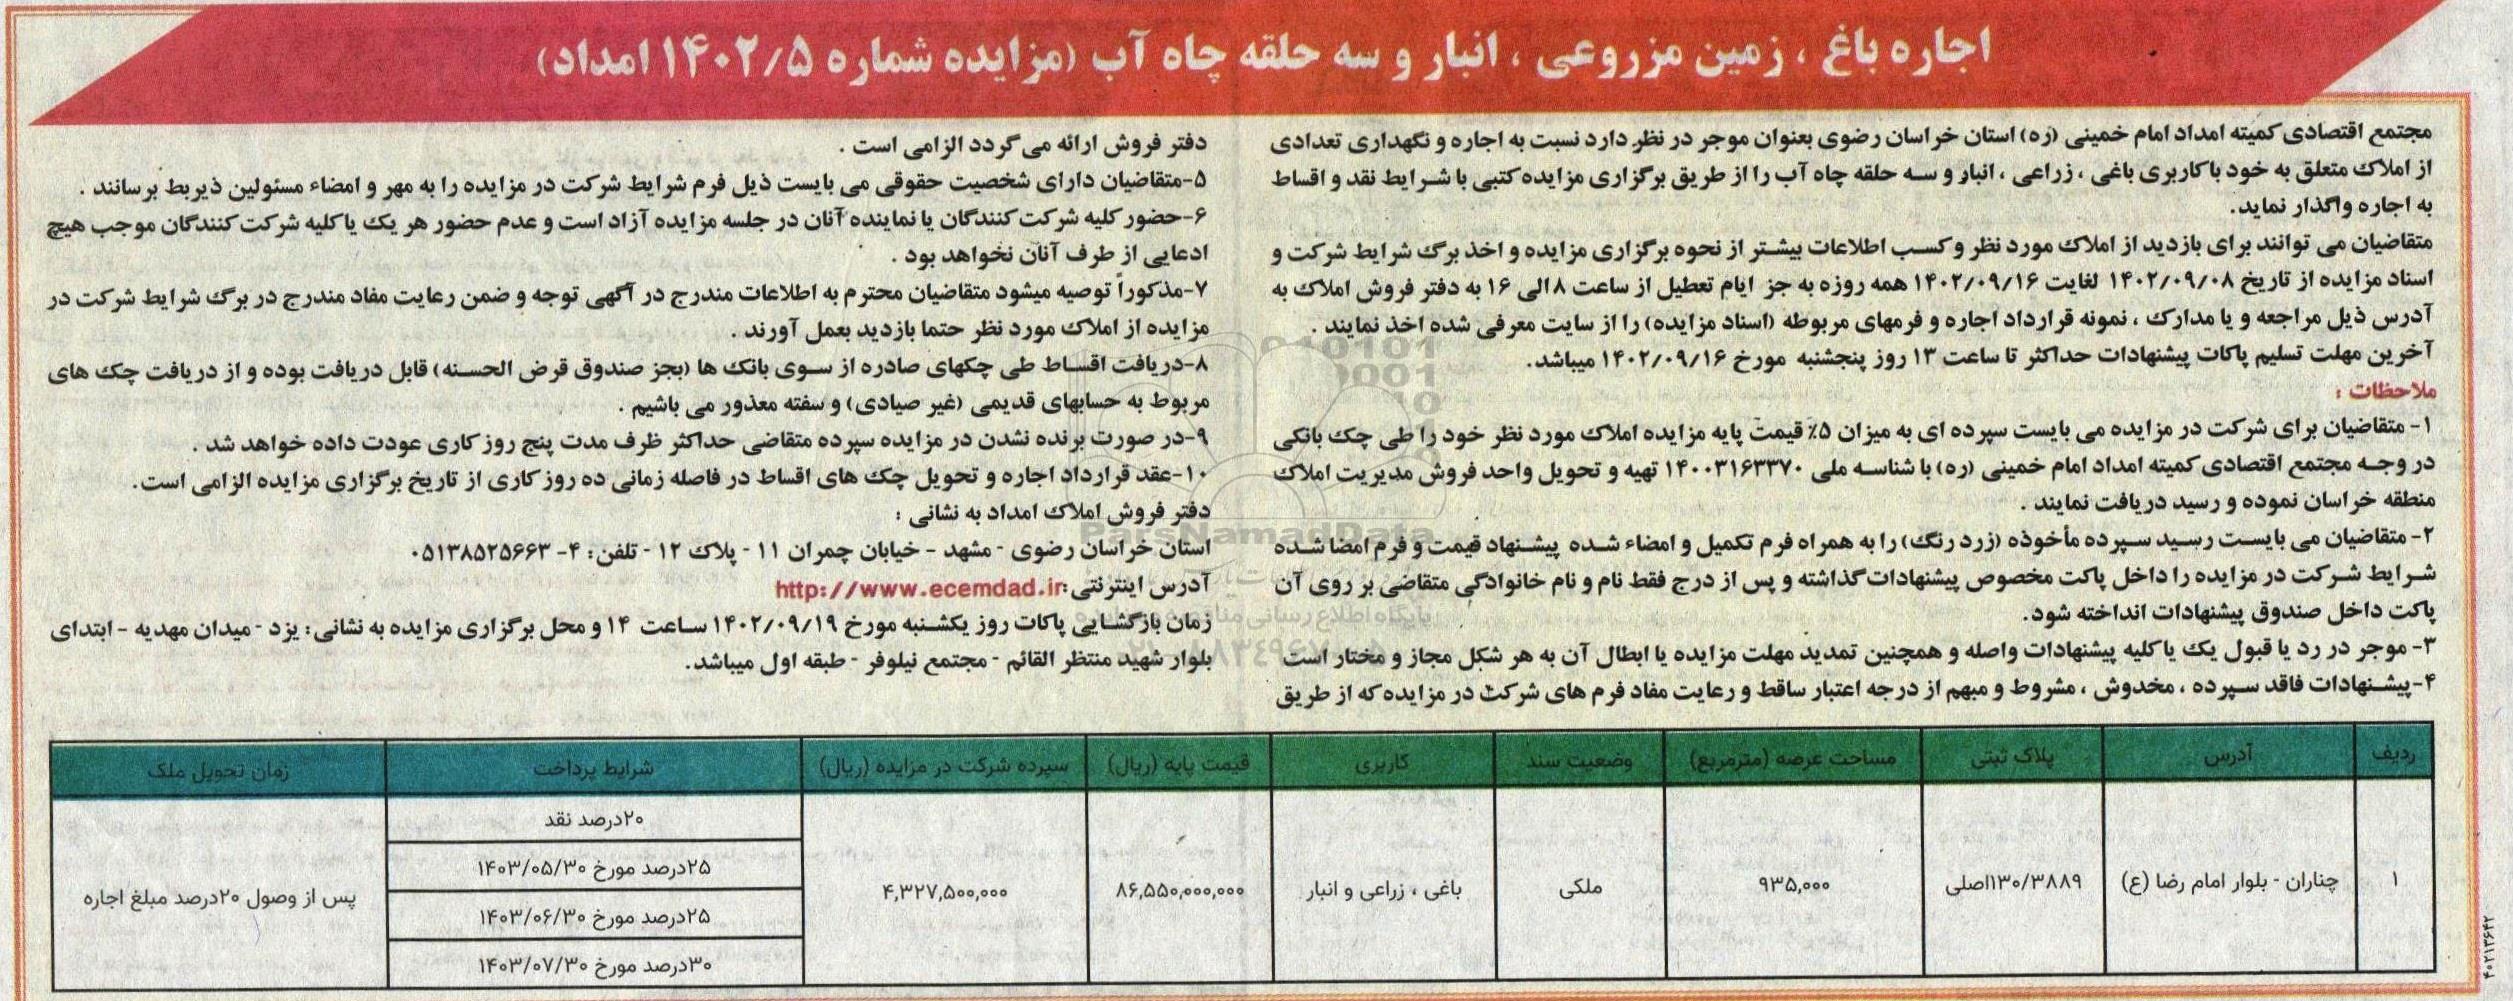 اجاره باغ ، زمین مزروعی ، انبار و سه حلقه چاه آب (مزایده شماره ۱۴۰۲/۵ امداد)
مجتمع اقتصادی کمیته امداد امام خمینی (ره) استان خراسان رضوی بعنوان موجر در نظر دارد نسبت به اجاره و نگهداری تعدادی
از املاک متعلق به خود با کاربری باغی ، زراعی ، انبار و سه حلقه چاه آب را از طریق برگزاری مزایده کتبی با شرایط نقد و اقساط
به اجاره واگذار نماید.
متقاضیان می توانند برای بازدید از املاک مورد نظر و کسب اطلاعات بیشتر از نحوه برگزاری مزایده و اخذ برگ شرایط شرکت و
اسناد مزایده از تاریخ ۱۴۰۲/۰۹/۰۸ لغایت ۱۴۰۲/۰۹/۱۶ همه روزه به جز ایام تعطیل از ساعت ۸ الی ۱۶ به دفتر فروش املاک به
آدرس ذیل مراجعه و یا مدارک ، نمونه قرارداد اجاره و فرمهای مربوطه (اسناد مزایده) را از سایت معرفی شده اخذ نمایند .
آخرین مهلت تسلیم پاکات پیشنهادات حداکثر تا ساعت ۱۳ روز پنجشنبه مورخ ۱۴۰۲/۰۹/۱۶ میباشد.
ملاحظات :
۱- متقاضیان برای شرکت در مزایده می بایست سپرده ای به میزان ۵٪ قیمت پایه مزایده املاک مورد نظر خود را طی چک بانکی
در وجه مجتمع اقتصادی کمیته امداد امام خمینی (ره) با شناسه ملی ۱۴۰۰۳۱۶۳۳۷۰ تهیه و تحویل واحد فروش مدیریت املاک
منطقه خراسان نموده و رسید دریافت نمایند .
۲- متقاضیان می بایست رسید سپرده مأخوذه (زرد رنگ) را به همراه فرم تکمیل و امضاء شده پیشنهاد قیمت و فرم امضا شده
شرایط شرکت در مزایده را داخل پاکت مخصوص پیشنهادات گذاشته و پس از درج فقط نام و نام خانوادگی متقاضی بر روی آن
پاکت داخل صندوق پیشنهادات انداخته شود.
۳- موجر در رد یا قبول یک یا کلیه پیشنهادات واصله و همچنین تمدید مهلت مزایده یا ابطال آن به هر شکل مجاز و مختار است
۴-پیشنهادات فاقد سپرده ، مخدوش ، مشروط و مبهم از درجه اعتبار ساقط و رعایت مفاد فرم های شرکت در مزایده که از طریق
دفتر فروش ارائه می گردد الزامی است .
۵-متقاضیان دارای شخصیت حقوقی می بایست ذیل فرم شرایط شرکت در مزایده را به مهر و امضاء مسئولین ذیربط برسانند .
۶-حضور کلیه شرکت کنندگان یا نماینده آنان در جلسه مزایده آزاد است و عدم حضور هر یک یا کلیه شرکت کنندگان موجب هیچ
ادعایی از طرف آنان نخواهد بود .
۷-مذکوراً توصیه میشود متقاضیان محترم به اطلاعات مندرج در آگهی توجه و ضمن رعایت مفاد مندرج در برگ شرایط شرکت در
مزایده از املاک مورد نظر حتما بازدید بعمل آورند .
۸-دریافت اقساط طی چکهای صادره از سوی بانک ها (بجز صندوق قرض الحسنه) قابل دریافت بوده و از دریافت چک های
مربوط به حسابهای قدیمی (غیر صیادی) و سفته معذور می باشیم .
۹-در صورت برنده نشدن در مزایده سپرده متقاضی حداکثر ظرف مدت پنج روز کاری عودت داده خواهد شد .
۱۰-عقد قرارداد اجاره و تحویل چک های اقساط در فاصله زمانی ده روز کاری از تاریخ برگزاری مزایده الزامی است.
دفتر فروش املاک امداد به نشانی :
استان خراسان رضوی - مشهد - خیابان چمران ۱۱ - پلاک ۱۲ - تلفن: ۴- ۰۵۱۳۸۵۲۵۶۶۳
آدرس اینترنتی :http://www.ecemdad.ir
زمان بازگشایی پاکات روز یکشنبه مورخ ۱۴۰۲/۰۹/۱۹ ساعت ۱۴ و محل برگزاری مزایده به نشانی : یزد - میدان مهدیه - ابتدای
بلوار شهید منتظر القائم - مجتمع نیلوفر - طبقه اول میباشد.
ParsNamadData
پایگاه اطلاع رسانی
ردیف آدرس پلاک ثبتی مساحت عرصه (مترمربع) وضعیت سند کاربری قیمت پایه (ریال) سپرده شرکت در مزایده (ریال) شرایط پرداخت زمان تحویل ملک
۱ چناران - بلوار امام رضا (ع) ۱۳۰/۳۸۸۹اصلی ۹۳۵,۰۰۰ ملکی باغی ، زراعی و انبار ۸۶,۵۵۰,۰۰۰,۰۰۰ ۴,۳۲۷,۵۰۰,۰۰۰
۲۰درصد نقد
۲۵درصد مورخ ۱۴۰۳/۰۵/۳۰
۲۵درصد مورخ ۱۴۰۳/۰۶/۳۰
۳۰درصد مورخ ۱۴۰۳/۰۷/۳۰
پس از وصول ۲۰درصد مبلغ اجاره
۴۰۲۱۳۶۴۲